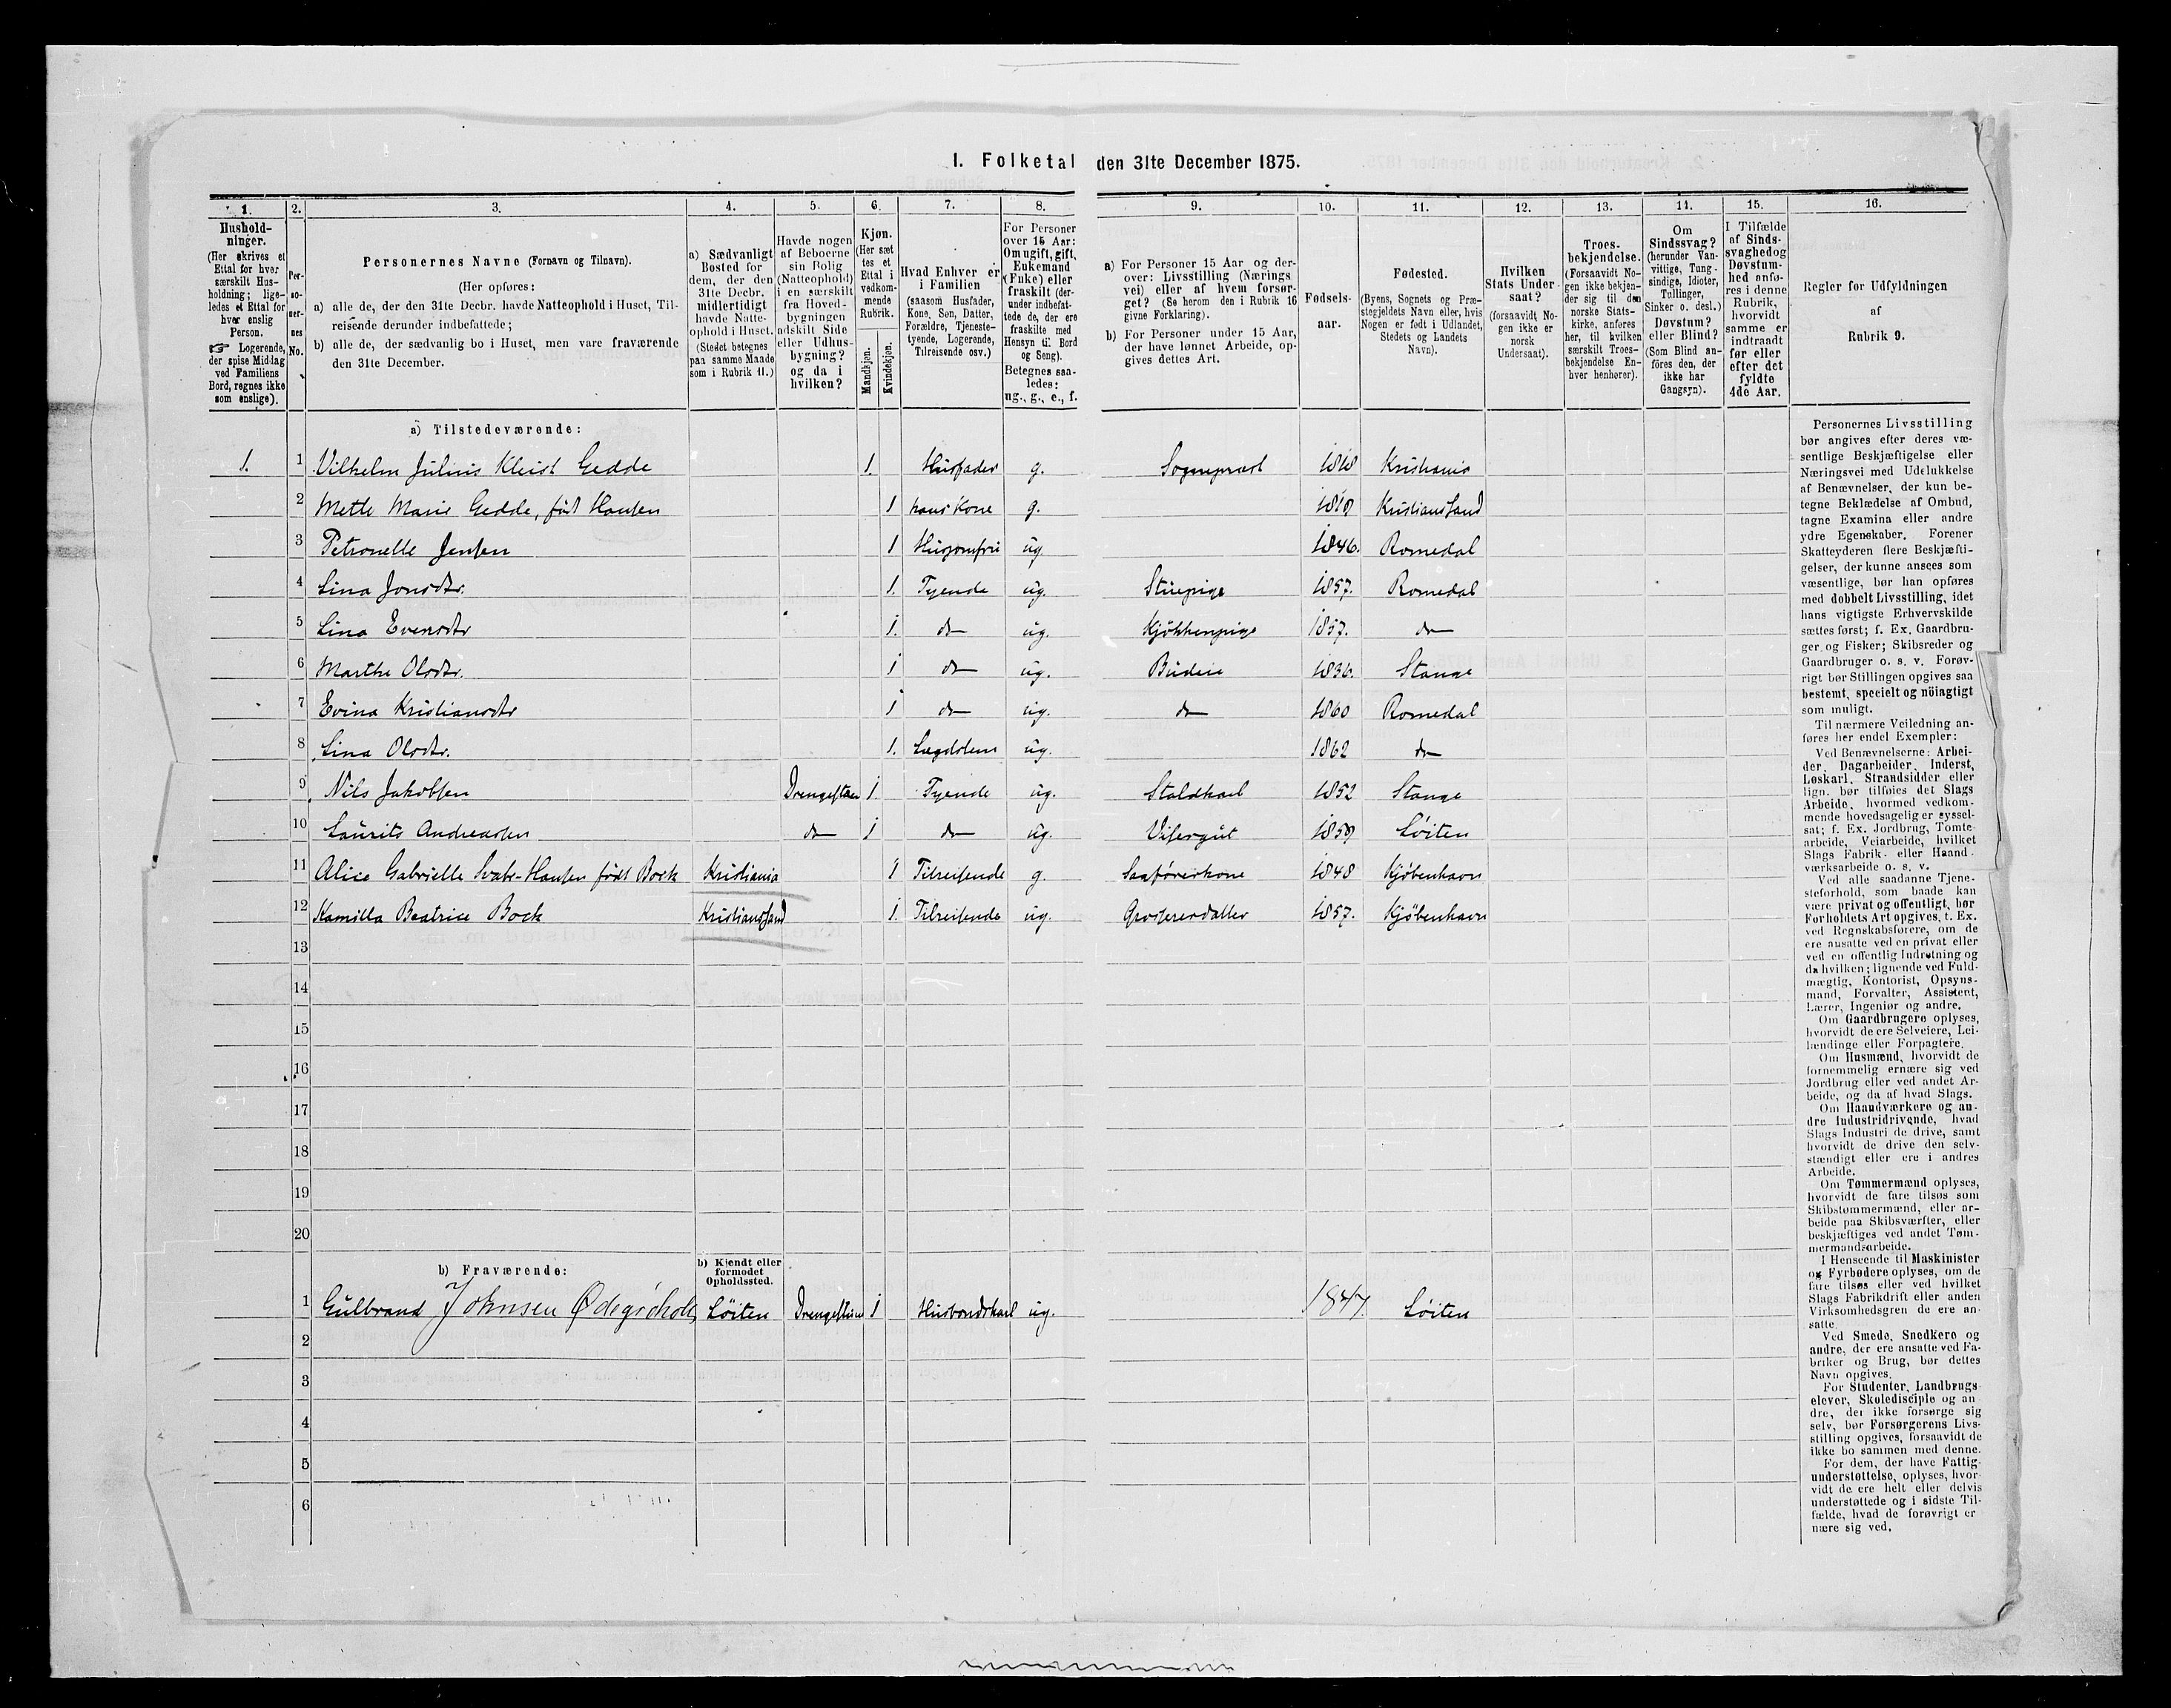 1. Folketal den 31te December 1875.
1. 2. 3. 4. 5. 6. 7. 8. 9. 10. 11. 12. 13. 14. 15. 16.
Hushold-
ninger.
(Her skrives et
Ettal for hver
særskilt Hus-
holdning; lige-
ledes et Ettal for
hver enslig
Person.
☞ Logerende,
der spise Middag
ved Familiens
Bord, regnes ikke
som enslige).
Per-
so-
ner-
nes
No.
Personernes Navne (Fornavn og Tilnavn).
(Her opføres:
a) alle de, der den 31te Decbr. havde Natteophold i Huset, Til-
reisende derunder indbefattede;
b) alle de, der sædvanlig bo i Huset, men vare fraværende
den 31te December.
a) Sædvanligt
Bosted for
dem, der den
31te Decbr.
midlertidigt
havde Natte-
ophold i Huset.
(Stedet betegnes
paa samme Maade
som i Rubrik 11.)
Havde nogen
af Beboerne
sin Bolig
(Natteophold)
i en særskilt
fra Hoved-
bygningen
adskilt Side
eller Udhus-
bygning?
og da i
hvilken?
Kjøn.
(Her sæt
tes et
Ettal i
vedkom-
mende
Rubrik.
Mandkjøn.
Kvindekjøn.
Hvad Enhver er
i Familien
(saasom Husfader,
Kone, Søn, Datter,
Forældre, Tjeneste-
tyende, Logerende,
Tilreisende osv.)
For Personer
over 15 Aar:
Om ugift, gift,
Enkemand
(Enke) eller
fraskilt (der-
under indbefat-
tede de, der ere
fraskilte med
Hensyn til Bord
og Seng).
Betegnes saa-
ledes:
ug., g., e., f.
a) For Personer 15 Aar og der-
over: Livsstilling (Nærings
vei) eller af hvem forsør-
get? (Se herom den i Rubrik 16
givne Forklaring).
b) For Personer under 15 Aar,
der have lønnet Arbeide, op-
gives dettes Art.
Fødsels-
aar.
Fødested.
(Byens, Sognets og Præ-
stegjeldets Navn eller, hvis
Nogen er født i Udlandet,
Stedets og Landets
Navn).
Hvilken
Stats Under-
saat?
(forsaavidt No-
gen ikke er
norsk
Undersaat).
Troes-
bekjendelse.
(Forsaavidt No-
gen ikke bekjen-
der sig til den
norske Stats-
kirke, anføres
her, til hvilken
særskilt Troes-
bekjendelse En-
hver henhører).
Om
Sindssvag?
(herunder Van-
vittige, Tung-
sindige, Idioter,
Tullinger,
Sinker o. desl.)
Døvstum?
eller Blind?
(Som Blind an-
føres den, der
ikke har
Gangsyn).
I Tilfælde
af Sinds-
svaghed og
Døvstum-
hed anfø-
res i denne
Rubrik,
hvorvidt
samme er
indtraadt
før eller
efter det
fyldte
4de Aar.
Regler for Udfyldningen
af
Rubrik 9.
a) Tilstedeværende:
1. 1 Vilhelm Julius Kleist Gedde 1. Husfader g. Sogneprest 1818 Kristiania
2 Mette Marie Gedde, født Hansen 1 hans Kone g. 1819 Kristianssand
3 Petronelle Jensen 1 Husjomfru ug 1846. Romedal
4 Lina Jonsdtr. 1. Tyende ug. Stuepige 1857. Romedal
5 Lina Evensdtr 1. do ug. Kjøkkenpige 1857. do
6 Marthe Olsdtr. 1 do ug. Budeie 1836. Stange
7 Evina Kristiansdtr 1 do ug. do 1860 Romedal
8 Lina Olsdtr. 1. Lægdslem ug. 1862 do
9 Nils Jakobsen Drengestuen 1. Tyende ug. Staldkarl 1852 Stange
10 Laurits Andreassen do 1 do ug. Visergut 1859 Løiten
11 Alice Gabrielle Svabe-Hansen født Bock Kristiania 1 Tilreisende g. Sagførerkone 1848 Kjøbenhavn
12 Kamilla Beatrice Bock Kristianssand 1. Tilreisende ug. Grossererdatter 1857. Kjøbenhavn
13
14
15
16
17
18
19
20
b) Fraværende:
b) Kjendt eller
formodet
Opholdssted.
1 Gulbrand Johnsen Løiten Drengestuen 1 Husbondskarl ug. 1847. Løiten
2
3
4
5
6
Personernes Livsstilling
bør angives efter deres væ-
sentlige Beskjæftigelse eller
Næringsvei med Udelukkelse
af Benævnelser, der kun be-
tegne Beklædelse af Ombud,
tagne Examina eller andre
ydre Egenskaber. Forener
Skatteyderen flere Beskjæfti-
gelser, der kunne ansees som
væsentlige, bør han opføres
med dobbelt Livsstilling, idet
hans vigtigste Erhvervskilde
sættes først; f. Ex. Gaardbru-
ger og Fisker; Skibsreder og
Gaardbruger o. s. v. Forøv-
rigt bør Stillingen opgives saa
bestemt, specielt og nöiagtigt
som muligt.
Til nærmere Veiledning an-
føres her endel Exempler:
Ved Benævnelserne: Arbei-
der, Dagarbeider, Inderst,
Løskarl, Strandsidder eller
lign. bør tilføies det Slags
Arbeide, hvormed vedkom-
mende hovedsagelig er syssel-
sat; f. Ex. Jordbrug, Tomte-
arbeide, Veiarbeide, hvilket
Slags Fabrik- eller Haand-
værksarbeide o. s. v.
Ved alle saadanne Tjene-
steforhold, som baade kan
være privat og offentligt, bør
Forholdets Art opgives, t. Ex.
ved Regnskabsførere, om de
ere ansatte ved en privat eller
ved en offentlig Indretning og
da hvilken; lignende ved Fuld-
mægtig, Kontorist, Opsyns-
mand, Forvalter, Assistent,
Lærer, Ingeniør og andre.
Om Gaardbrugere oplyses,
hvorvidt de ere Selveiere, Lei-
lændinge eller Forpagtere.
Om Husmænd, hvorvidt de
fornemmelig ernære sig ved
Jordbrug eller ved andet Ar-
beide, og da af hvad Slags.
Om Haandværkere og an-
dre Industridrivende, hvad
Slags Industri de drive, samt
hvorvidt de drive den selv-
stændigt eller ere i andres
Arbeide.
Om Tømmermænd oplyses,
hvorvidt de fare tilsøs som
Skibstømmermænd, eller ar-
beide paa Skibsværfter, eller
beskjæftiges ved andet Tøm-
mermandsarbeide.
I Henseende til Maskinister
og Fyrbødere oplyses, om de
fare tilsøs eller ved hvilket
Fabrikdrift eller anden
Virksomhedsgren de ere an-
satte.
Ved Smede, Snedkere og
andre, der ere ansatte ved Fa-
briker og Brug, bør dettes
Navn opgives.
For Studenter, Landbrugs-
elever, Skoledisciple og an
dre, der ikke forsørge sig
selv, bør Forsørgerens Livs-
stilling opgives, forsaavidt de
ikke bo sammen med denne.
For dem, der have Fattig-
understøttelse, oplyses, hvor-
vidt de ere helt eller delvis
understøttede og i sidste Til-
fælde, hvad de forøvrigt er
nære sig ved.